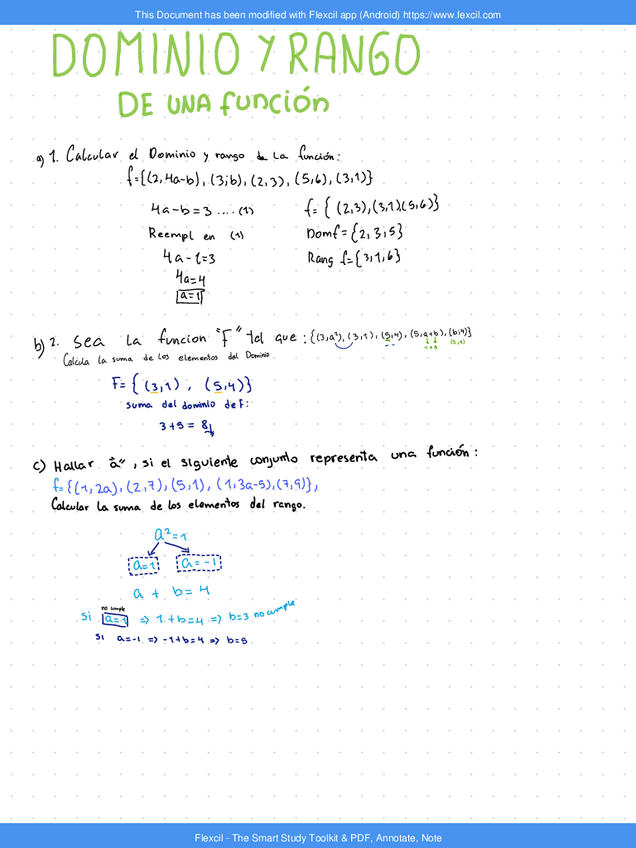 This Document has been modified with Flexcil app (Android) https://www.fexcil.com
DOMINIO Y RANGO
DE UNA función
a) 1. Calcular el Dominio y rango de La función:
f={(2,4a-b), (3;b), (2,3), (5,6), (3,1)}
4a-b=3 ....(1)
f= { (2,3),(3,1)(5,6)}
Reempl en (1)
Domf={2,3,5}
4a-1=3
Rang f={3,1,6}
4a=4
a=1
b) 2. Sea La funcion "F" tal que : {(3,a²), (3,1), (5,4), (5,a+b), (b,4)}
-1+5 (5,4)
Calcula la suma de los elementos del Dominio
F= { (3,1) , (5,4)}
suma del dominio de F:
3+5 = 8
c) Hallar "a", si el siguiente conjunto representa una función:
f={(1,2a),(2,7),(5,1),(1,3a-5),(7,9)},
Calcular la suma de los elementos del rango.
a²=1
a=1 a=-1
a + b= 4
no cumple
Si a=1 => 1+b=4 => b=3 no cumple
Si a=-1 => -1+b=4 => b=5
Flexcil - The Smart Study Toolkit & PDF, Annotate, Note